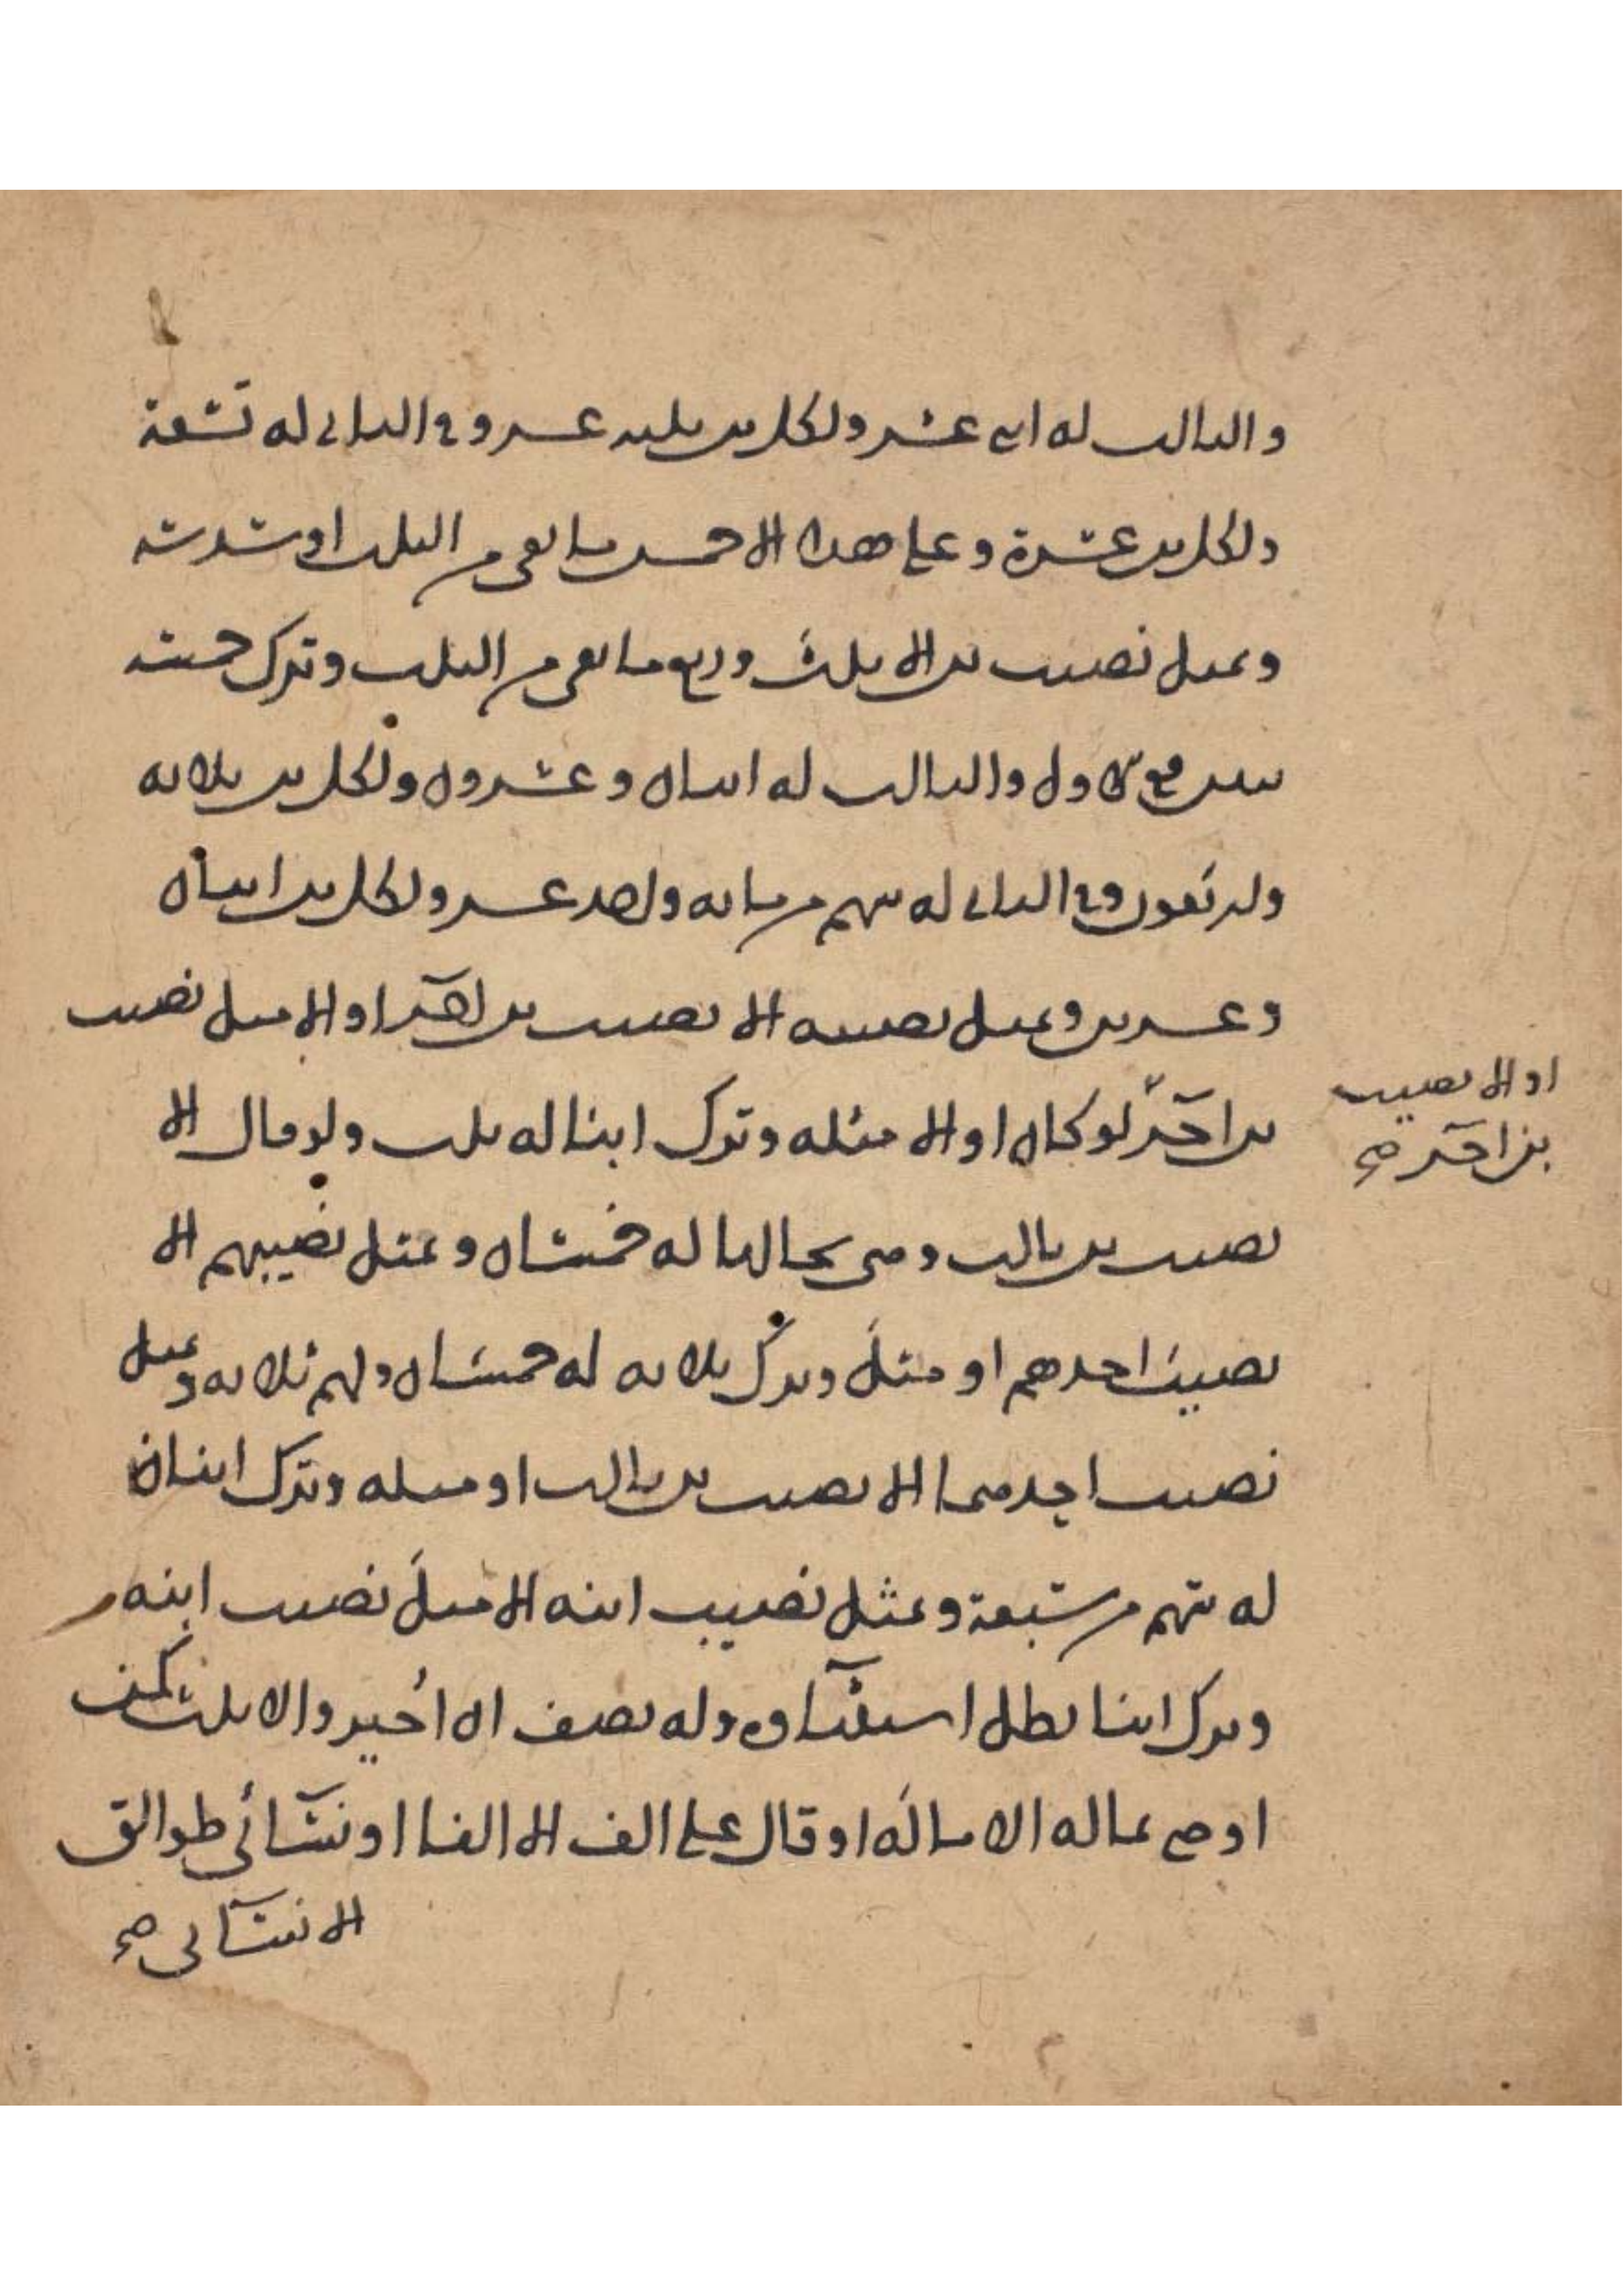 والثالث له اثنى عشر ولكل ابن ثلثة عشر وفي الثاني له تسعة
ولكل ابن عشرة وعلى هذا الا خمس ما بقي من الثلث او سدسه
وبمثل نصيب ابن الا ثلث وربع ما بقي من الثلث وترك خمسة
بنين ففي الاول والثالث له اثنان وعشرون ولكل ابن ثلاثة
واربعون وفي الثاني له سهم من مائة واحد عشر ولكل ابن اثنان
وعشرين وبمثل نصيبه الا نصيب ابن آخر او الا مثل نصيب
او الا نصيب
ابن آخر صح
ابن آخر لو كان او الا مثله وترك ابنا له ثلث ولو قال الا
نصيب ابن ثالث وهي بحالها له خمسان وبمثل نصيبهم الا
نصيب احدهم او مثل وترك ثلاثة له خمسان ولهم ثلاثة وبمثل
نصيب احدهما الا نصيب ابن ثالث او مثله وترك ابنان
له سهم من سبعة وبمثل نصيب ابنه الا مثل نصيب ابنه
وترك ابنا بطل استثناؤه وله نصف ان اجيز والا ثلث كمن
اوصى بماله الا ماله او قال علي الف الا الفا او نسائي طوالق
الا نسائي صح